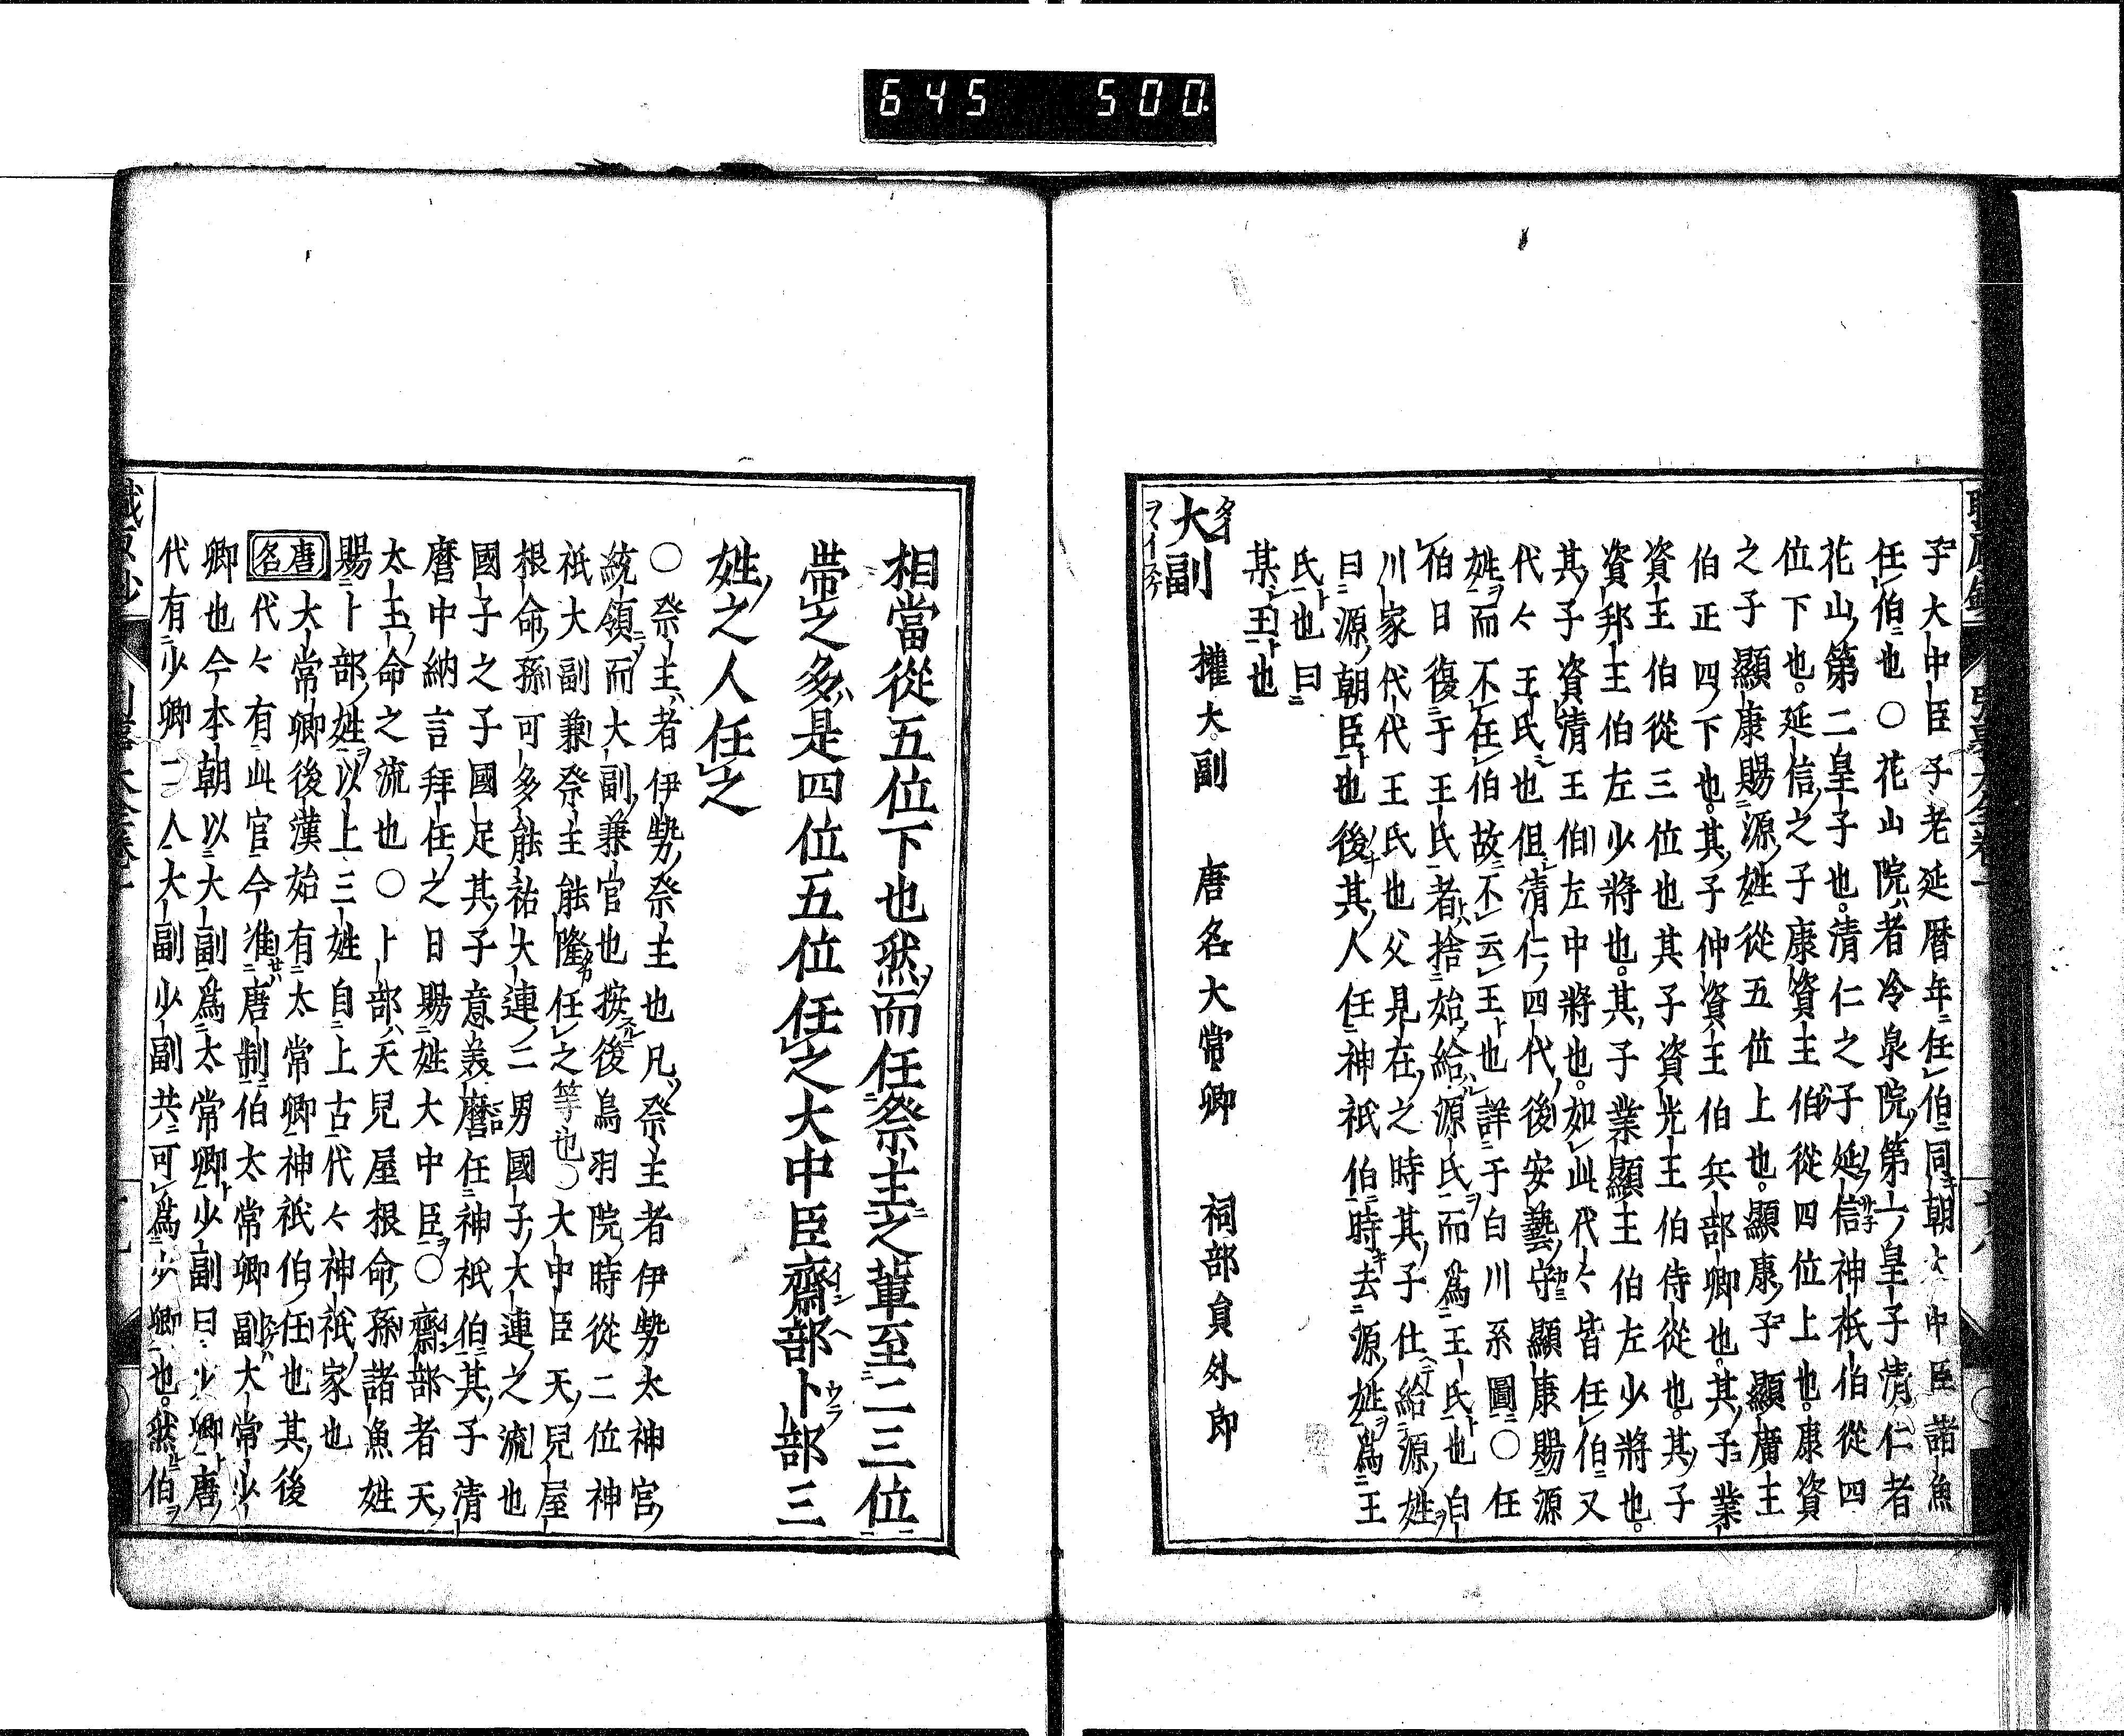 645 500
子大中臣子老延暦年任伯同朝大中臣諸魚
任伯也〇花山院者冷泉院第一皇子清仁者
花山第二皇子也清仁之子延信神祇伯從四
位下也延信之子康資主伯從四位上也康資
之子顯康賜源姓從五位上也顯康子顯廣主
伯正四下也其子仲資王伯兵部卿也其子業
資王伯從三位也其子資光王伯侍從也其子
資邦王伯左少將也其子業顯王伯左少將也
其子資清王伯左中將也如此代々皆任伯又
代々王氏也但清仁四代後安藝守顯康賜源
姓而不任伯故不云王也詳于白川系圖〇任
伯日復于王氏者捨始給源氏而爲王氏也白
川家代代王氏也父見在之時其子仕給源姓
曰源朝臣也後其人任神祇伯時去源姓爲王
氏也曰
某王也
大副 權大副 唐名大常卿 祠部員外郎
相當從五位下也然而任祭主之輩至二三位
帶之多是四位五位任之大中臣齋部卜部三
姓之人任之
〇祭主者伊勢祭主也凡祭主者伊勢太神宮
統領而大副兼官也按後鳥羽院時從二位神
祇大副兼祭主能隆任之等也〇大中臣天兒屋
根命孫可多能祐大連二男國子大連之流也
國子之子國足其子意美麿任神祇伯其子清
麿中納言拜任之日賜姓大中臣〇齋部者天
太玉命之流也〇卜部天兒屋根命孫諸魚姓
賜卜部姓以上三姓自上古代々神祇家也
唐名 大常卿後漢始有太常卿神祇伯任也其後
代々有此官今准唐制伯太常卿副大常少
卿也今本朝以大副爲太常卿少副曰少卿唐
代有少卿二人大副少副共可爲少卿也然伯